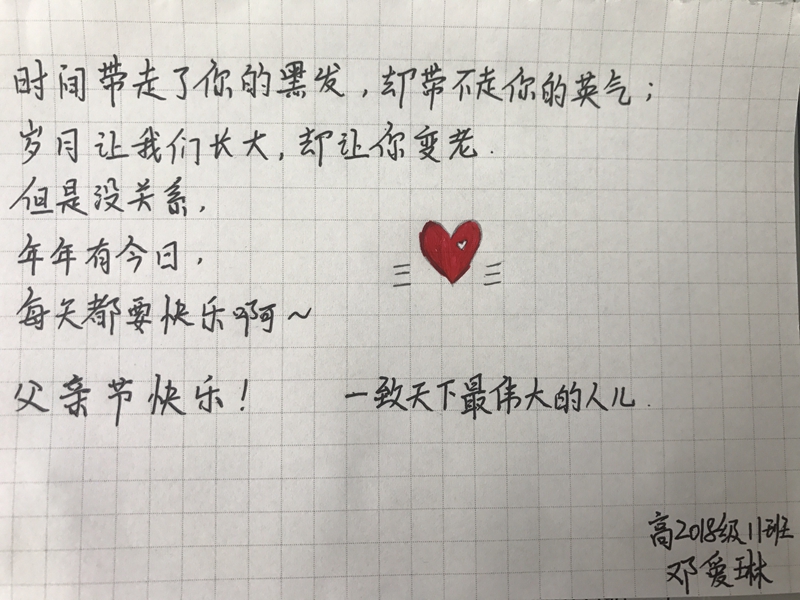 时间带走了你的黑发,却带不走你的英气;
岁月让我们长大,却让你变老.
但是没关系,
年年有今日,
每天都要快乐啊~
父亲节快乐! 一致天下最伟大的人儿.
高2018级11班
邓爱琳